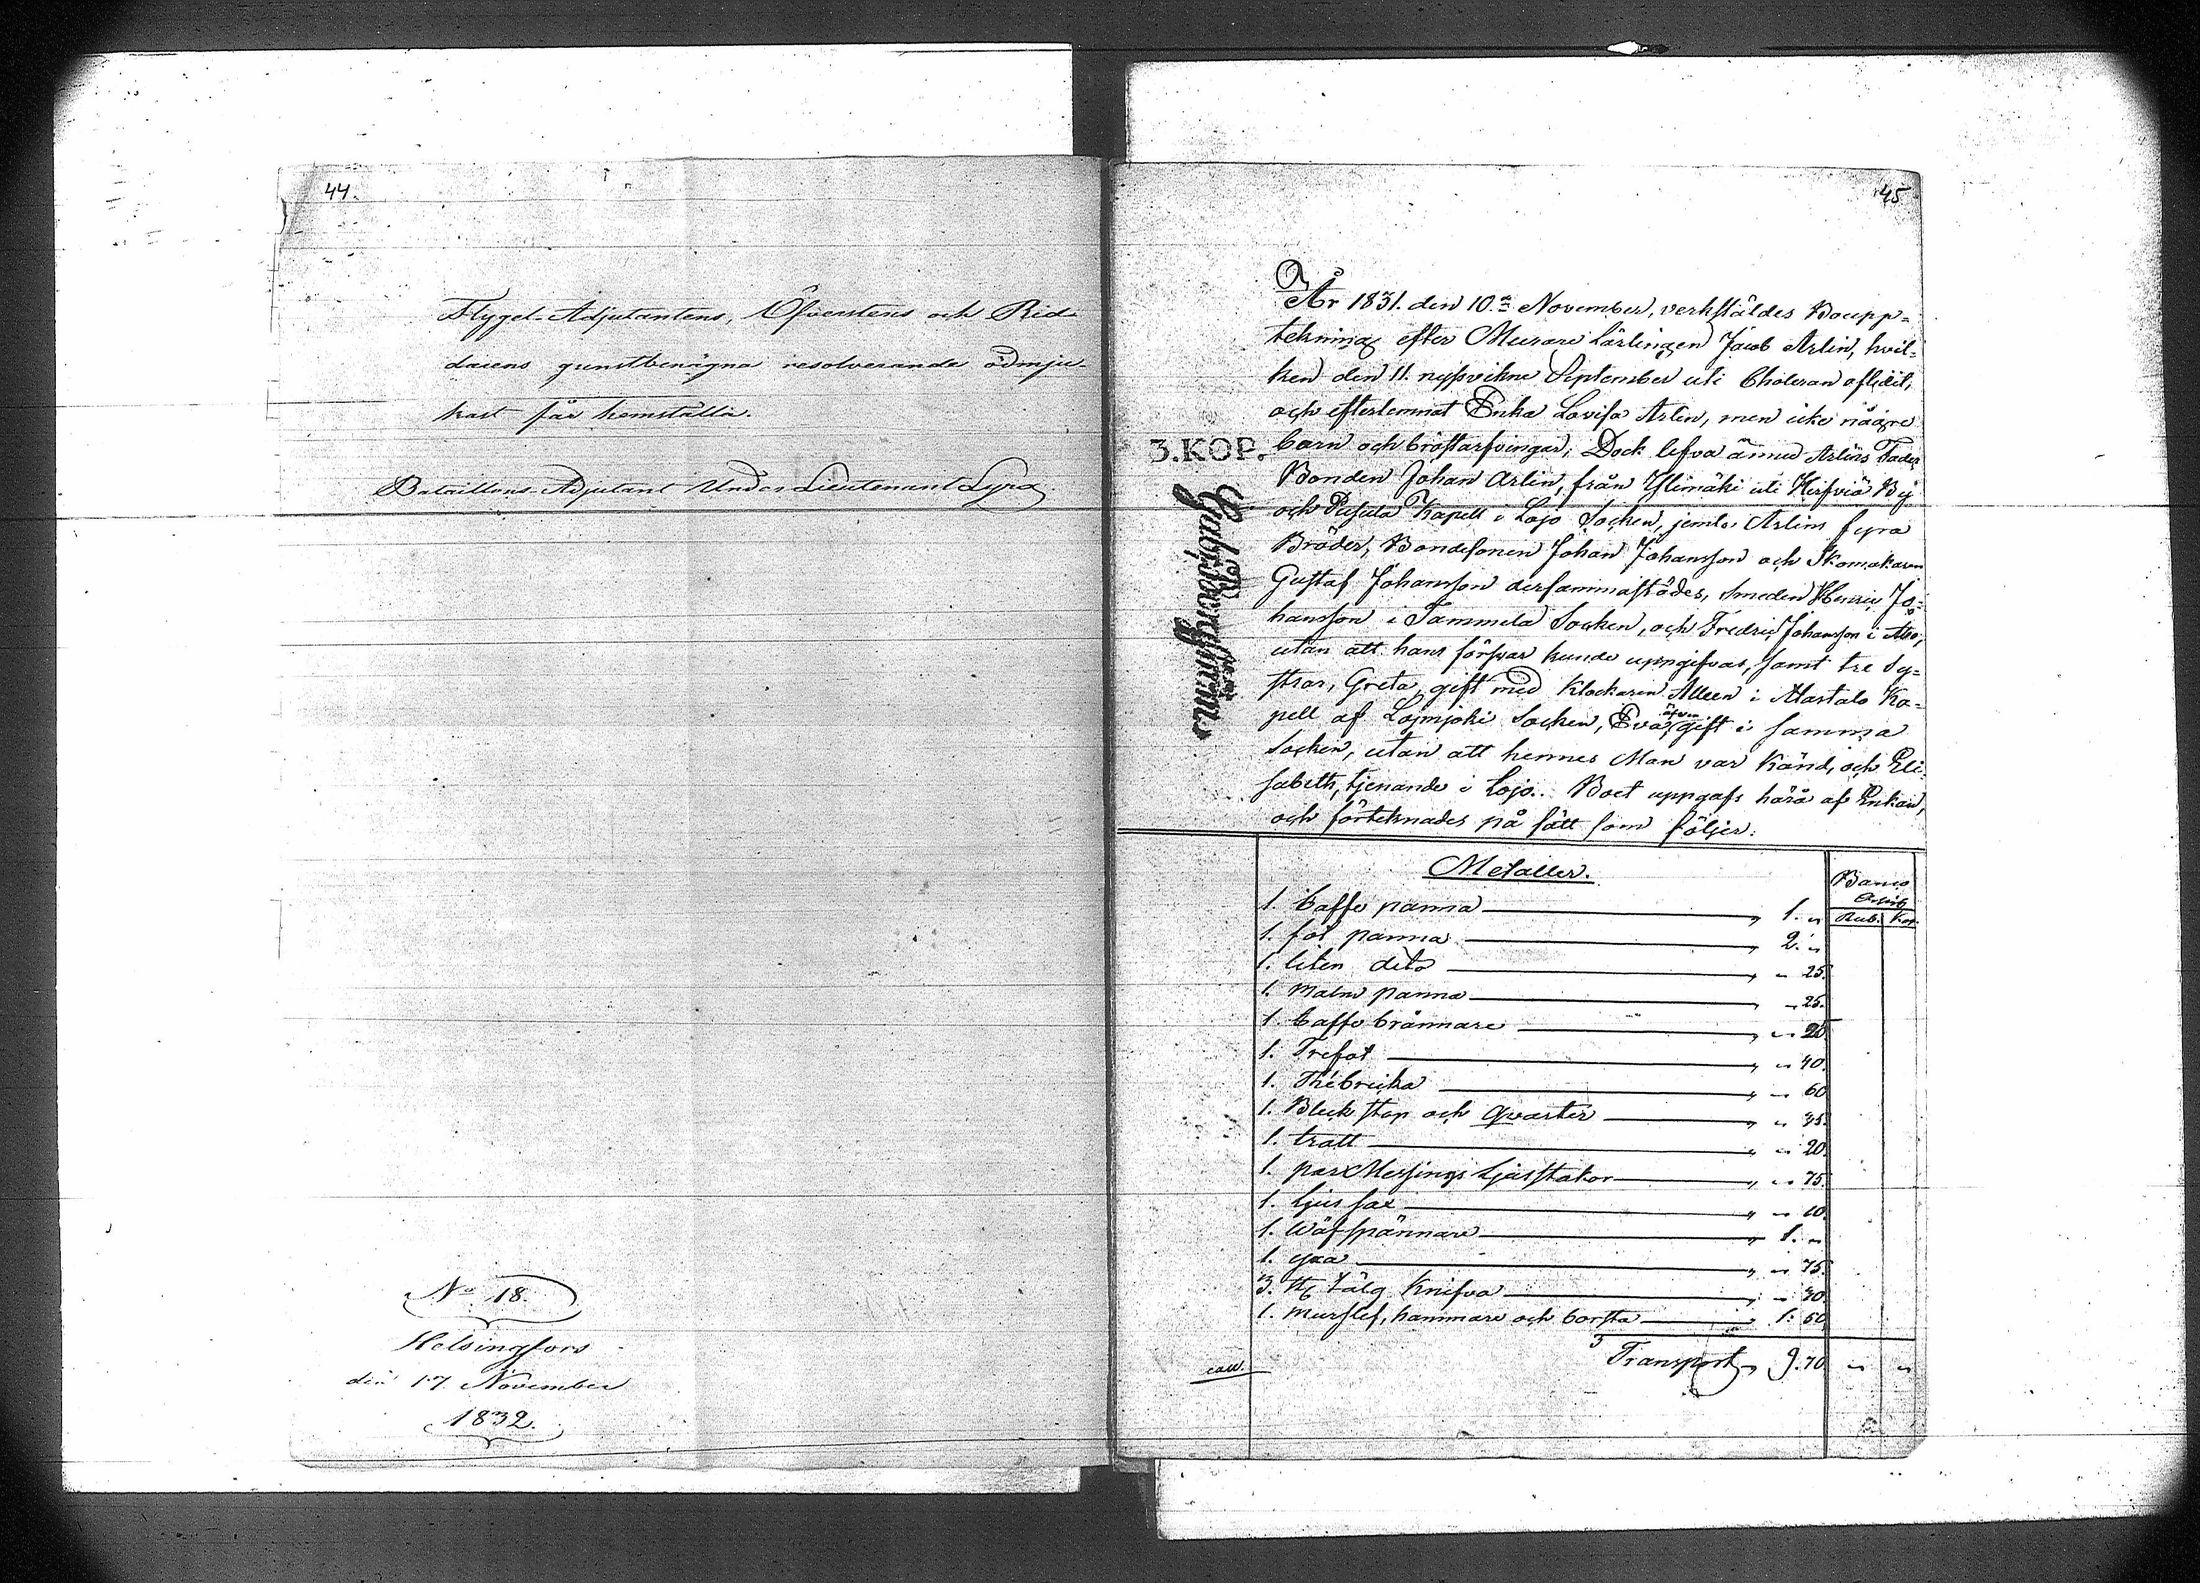 44.
Flygel-Adjutantens, Öfverstens och Rid-
darens gunstbenägna resolverande ödmju-
kast får hemställa.
Bataillons-Adjutant Under Lieutenant Lyra
No 18.
Helsingfors
den 17 November
1832.
45
År 1831. den 10.de November, verkställdes Boupp=
tekning efter Murare Lärlingen Jacob Arlin, hvil-
ken den 11. nyssvikne September uti Choleran aflidit,
och efterlemnat Enka Lovisa Arlin, men icke någre
3.KOP.
barn och bröstarfvingar; Dock lefva ännu Arlins Fader
Bonden Johan Arlin, från Ylimäki uti Hirfviö By
och Pusula Kapell i Lojo Socken, jemte Arlins fyra
Bröder, Bondesonen Johan Johansson och Skomakaren
Gustaf Johansson dersammastädes, Smeden Henric Jo=
hansson i Tammela Socken, och Fredric Johansson i Åbo,
utan att hans förswar kunde uppgifvas, samt tre Sy=
strar, Greta gift med Klockaren Alleen i Martala Ka=
pell af Loimjoki Socken, Eva, äfven gift i samma
Socken, utan att hennes Man var känd, och Eli-
sabeth, tjenande i Lojo. Boet uppgafs härå af Enkan,
och förteknades på sätt som följer:
Metaller.
Banco
Assig
Rub. Kop.
1. Caffe panna " 1. "
1. fot panna " 2. "
1. liten dito " " 25.
1. Malm panna " 25.
1. Caffe brännare " " 20
1. Trefot " " 40.
1. Thébricka " " 60
1. Bleck stop och qvarter " " 35.
1. tratt " " 20.
1. par Messings Ljusstakar " " 75.
1. Ljus sax " " 10.
1. Wäfspännare " 1. "
1. yxa " " 75.
3. st. tälg Knifva " " 30.
1. Murslef, hammare och borsta " 1: 50.
Transport " 9.70. " "